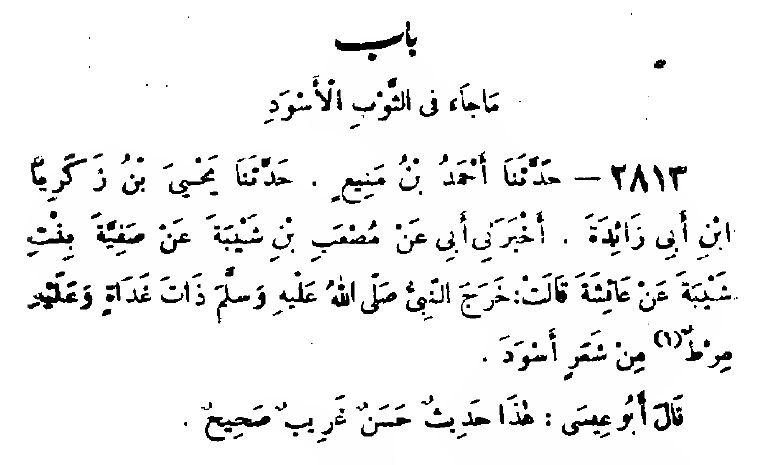 باب
مَا جَاءَ فِى الثَّوْبِ الْأَسْوَدِ
٢٨١٣ – حَدَّثَنَا أَحْمَدُ بْنُ مَنِيعٍ . حَدَّثَنَا يَحْيَىَ بْنُ زَكَرِيَّا
ابْنِ أَبِى زَائِدَةَ . أَخْبَرَنِى أَبِى عَنْ مُصْعَبِ بْنِ شَيْبَةَ عَنْ صَفِيَّةَ بِنْتِ
شَيْبَةَ عَنْ عَائِشَةَ قَالَتْ: خَرَجَ النَّبِىُّ صَلَّى اللهُ عَلَيْهِ وَسَلَّمَ ذَاتَ غَدَاةٍ وَعَلَيْهِ
مِرْطٌ (١) مِنْ شَعَرٍ أَسْوَدَ .
قَالَ أَبُو عِيسَى : هٰذَا حَدِيثٌ حَسَنٌ غَرِيبٌ صَحِيحٌ .